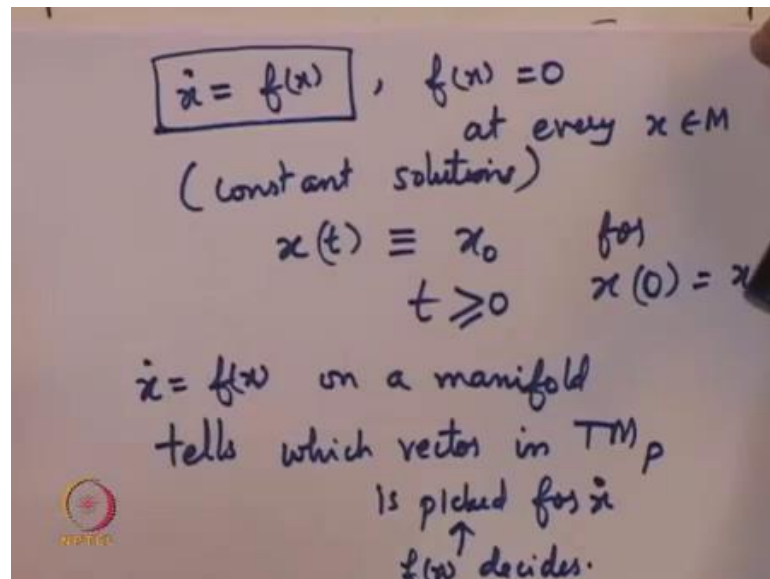 ẋ = f(x) , f(x) = 0
at every x ∈ M
(constant solutions)
x(t) ≡ x₀ for
t ⩾ 0 x(0) = x
ẋ = f(x) on a manifold
tells which vector in TM_p
is picked for ẋ
↑
f(x) decides.
NPTEL